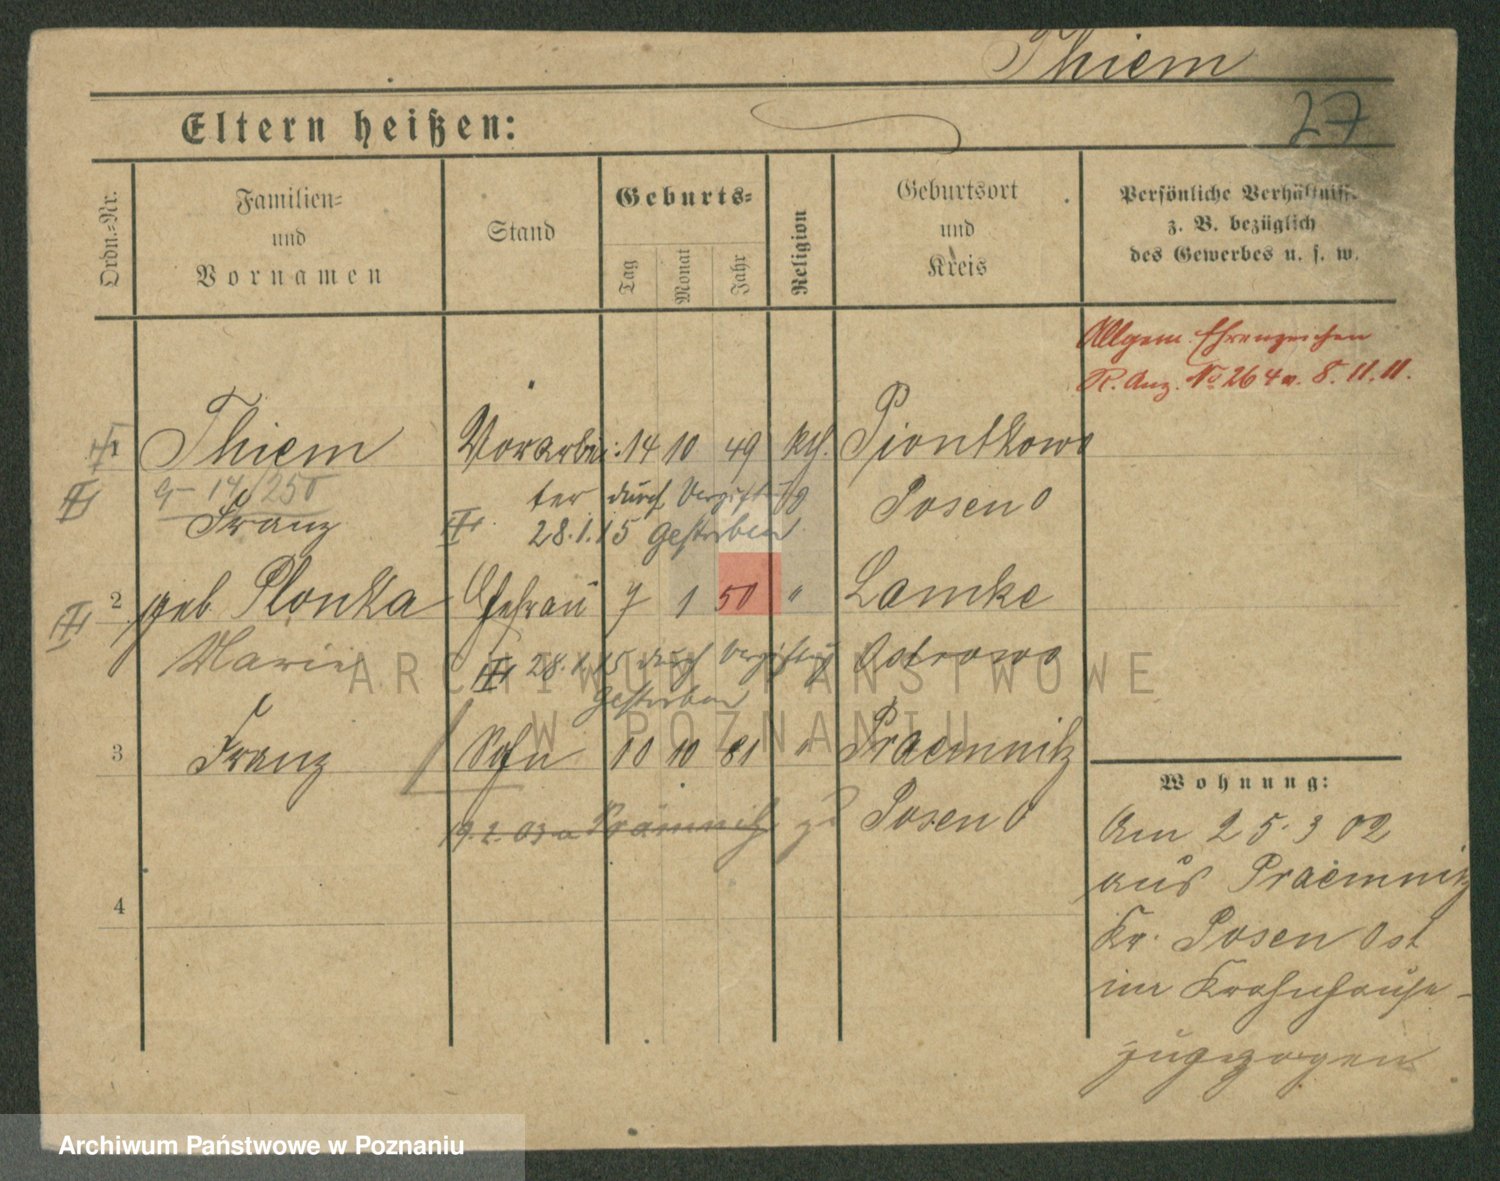 Thiem
27
Eltern heißen:
Ordn.=Nr.
Familien=
und
Vornamen
Stand
Geburts=
Tag
Monat
Jahr
Religion
Geburtsort
und
Kreis
Persönliche Verhältnisse
z. B. bezüglich
des Gewerbes u. s. w.
Allgem. Ehrenzeichen
R. Anz. No 264 v. 8.11.11.
1 Thiem Vorarbei: 14 10 49 kth. Piontkowo
14/250 ter durch Vergiftung Posen O
Franz 28.1.15 Gestorben
2 geb Plonka Ehefrau 7 1 50 " Lamke
Marie 28.1.15 durch Vergiftung Ostrowo
Gestorben
3 Franz Sohn 10 10 81 " Praemnitz
19.2.03 a Prämnitz Posen O
4
Wohnung:
Am 25.3 02
aus Praemnitz
Kr. Posen Ost
im Krahnhause
zugezogen
ARCHIWUM PAŃSTWOWE
W POZNANIU
Archiwum Państwowe w Poznaniu